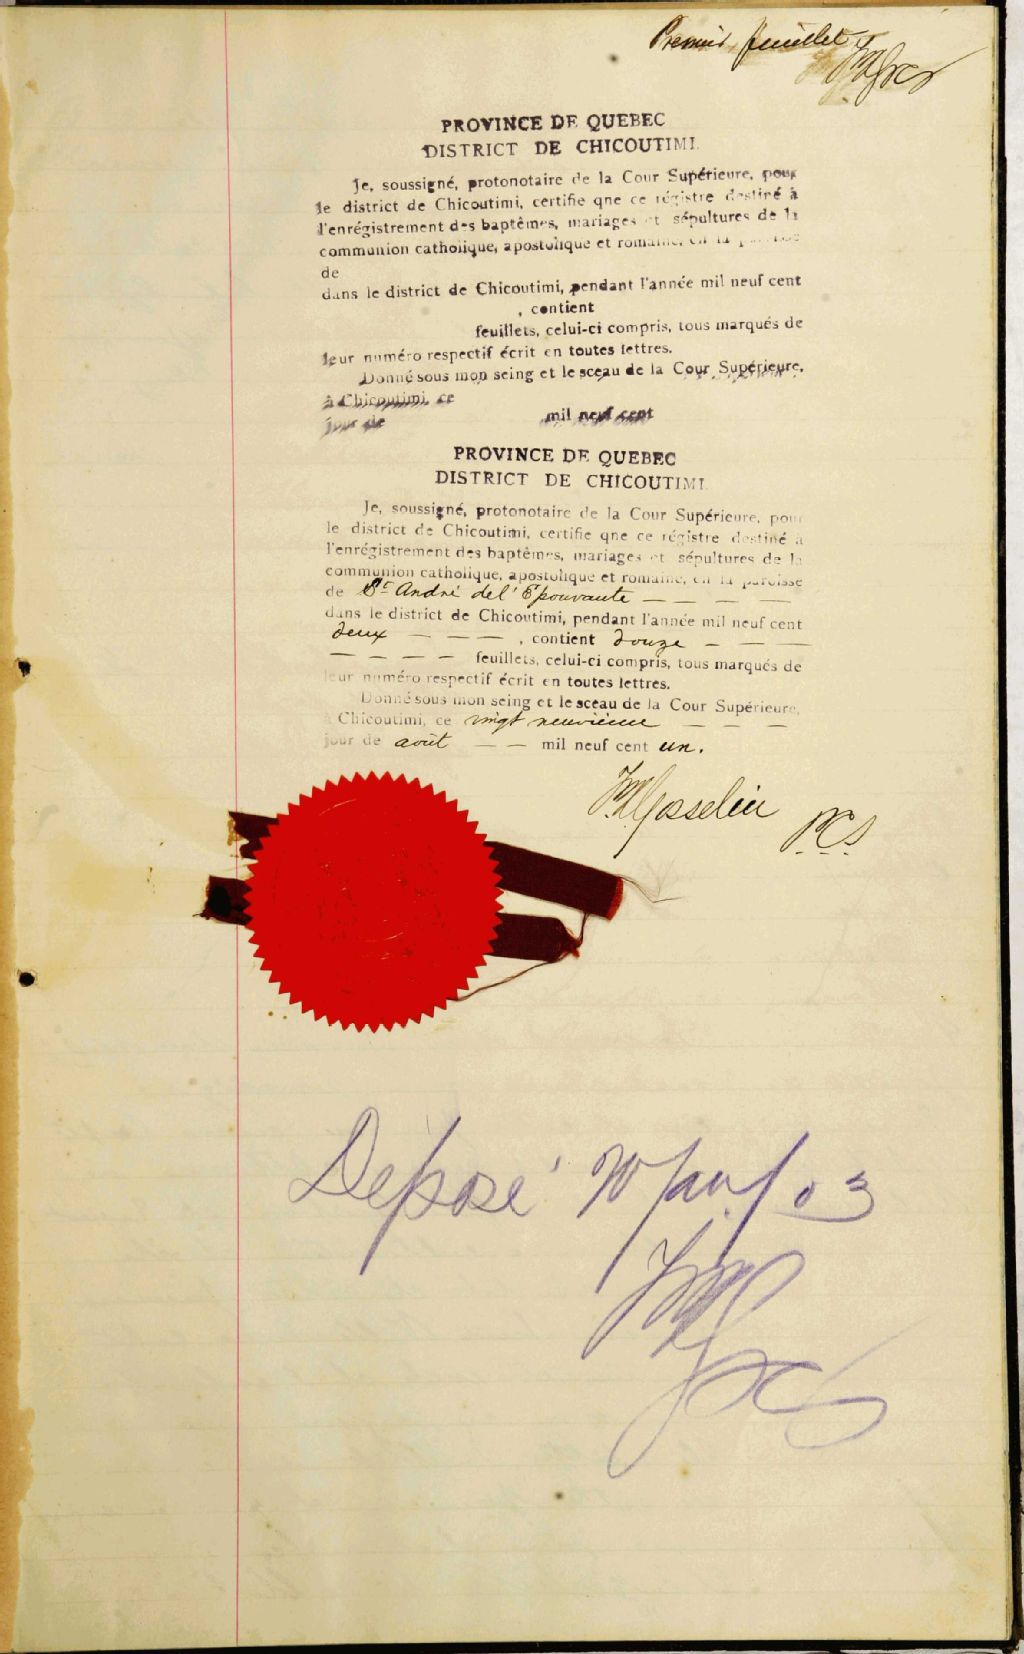 Premier feuillet
PROVINCE DE QUEBEC
DISTRICT DE CHICOUTIMI.
Je, soussigné, protonotaire de la Cour Supérieure, pour
le district de Chicoutimi, certifie qne ce régistre destiné à
l'enrégistrement des baptêmes, mariages et sépultures de la
communion catholique, apostolique et romaine, en la paroisse
de
dans le district de Chicoutimi, pendant l'année mil neuf cent
, contient
feuillets, celui-ci compris, tous marqués de
leur numéro respectif écrit en toutes lettres.
Donné sous mon seing et le sceau de la Cour Supérieure,
à Chicoutimi, ce
jour de mil neuf cent
PROVINCE DE QUEBEC
DISTRICT DE CHICOUTIMI.
Je, soussigné, protonotaire de la Cour Supérieure, pour
le district de Chicoutimi, certifie qne ce régistre destiné à
l'enrégistrement des baptêmes, mariages et sépultures de la
communion catholique, apostolique et romaine, en la paroisse
de St André de l'Epouvante — — — —
dans le district de Chicoutimi, pendant l'année mil neuf cent
deux — — — — , contient douze — — —
— — — — — feuillets, celui-ci compris, tous marqués de
leur numéro respectif écrit en toutes lettres.
Donné sous mon seing et le sceau de la Cour Supérieure,
à Chicoutimi, ce vingt neuvième — — — —
jour de août — — mil neuf cent un.
Gosselin P.C.S
Déposé Janv/03